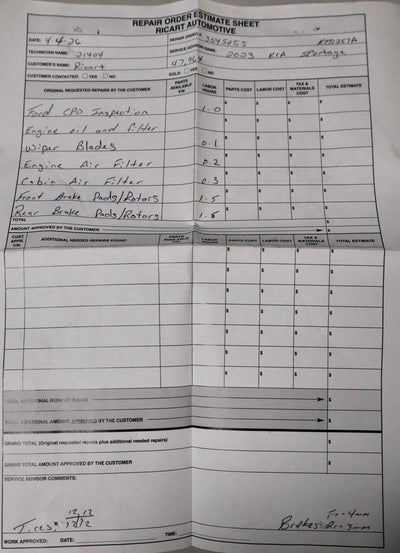 REPAIR ORDER ESTIMATE SHEET
RICART AUTOMOTIVE
DATE: 4-4-26 REPAIR ORDER #: 3545255
TECHNICIAN NAME: 21404 SERVICE ADVISOR NAME: 2023 KIA Sportage
CUSTOMER'S NAME: Ricart 47,964
CUSTOMER CONTACTED: YES NO SOLD: YES NO
ORIGINAL REQUESTED REPAIRS BY THE CUSTOMER PARTS AVAILABLE Y/N LABOR HOURS PARTS COST LABOR COST TAX & MATERIALS COST TOTAL ESTIMATE
Ford CPO Inspection 1-0 $ $ $ $
Engine oil and filter $ $ $ $
Wiper Blades 0-1 $ $ $ $
Engine Air Filter 0-2 $ $ $ $
Cabin Air Filter 0-3 $ $ $ $
Front Brake Pads/Rotors 1-5 $ $ $ $
Rear Brake Pads/Rotors 1-5 $ $ $ $
TOTAL
AMOUNT APPROVED BY THE CUSTOMER $
CUST. APPR. Y/N ADDITIONAL NEEDED REPAIRS FOUND PARTS AVAILABLE Y/N LABOR HOURS PARTS COST LABOR COST TAX & MATERIALS COST TOTAL ESTIMATE
$ $ $ $
$ $ $ $
$ $ $ $
$ $ $ $
$ $ $ $
$ $ $ $
$ $ $ $
TOTAL ADDITIONAL REPAIRS FOUND $
TOTAL ADDITIONAL AMOUNT APPROVED BY THE CUSTOMER $
GRAND TOTAL (Original requested repairs plus additional needed repairs) $
GRAND TOTAL AMOUNT APPROVED BY THE CUSTOMER $
SERVICE ADVISOR COMMENTS:
12, 12
Tires: 12/12
Fr-4mm
Brakes: Rr-3mm
WORK APPROVED: DATE: TIME: